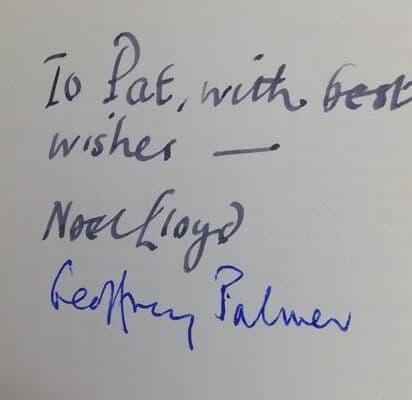 To Pat, with best
wishes —
Noel Lloyd
Geoffrey Palmer